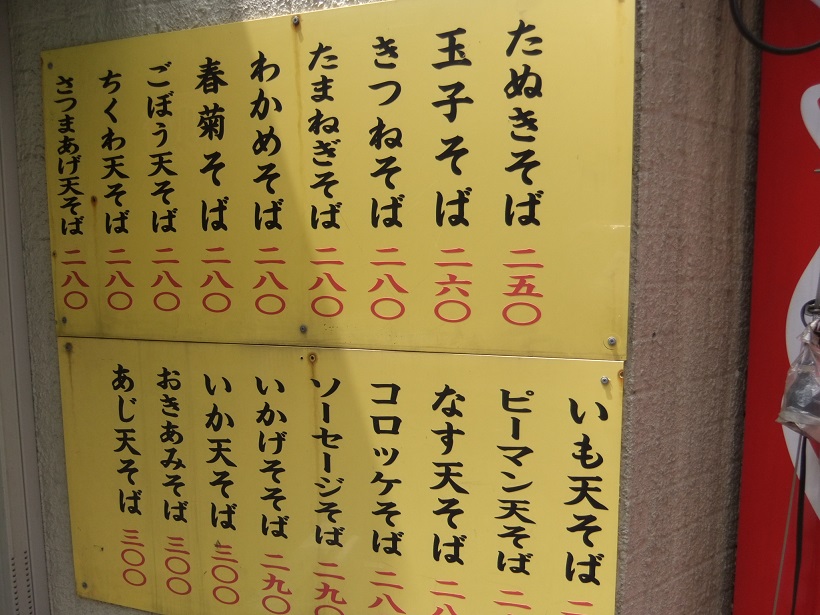 たぬきそば 二五〇
玉子そば 二六〇
きつねそば 二八〇
たまねぎそば 二八〇
わかめそば 二八〇
春菊そば 二八〇
ごぼう天そば 二八〇
ちくわ天そば 二八〇
さつまあげ天そば 二八〇
いも天そば
ピーマン天そば 二
なす天そば 二八
コロッケそば 二八
ソーセージそば 二九〇
いかげそそば 二九〇
いか天そば 三〇〇
おきあみそば 三〇〇
あじ天そば 三〇〇